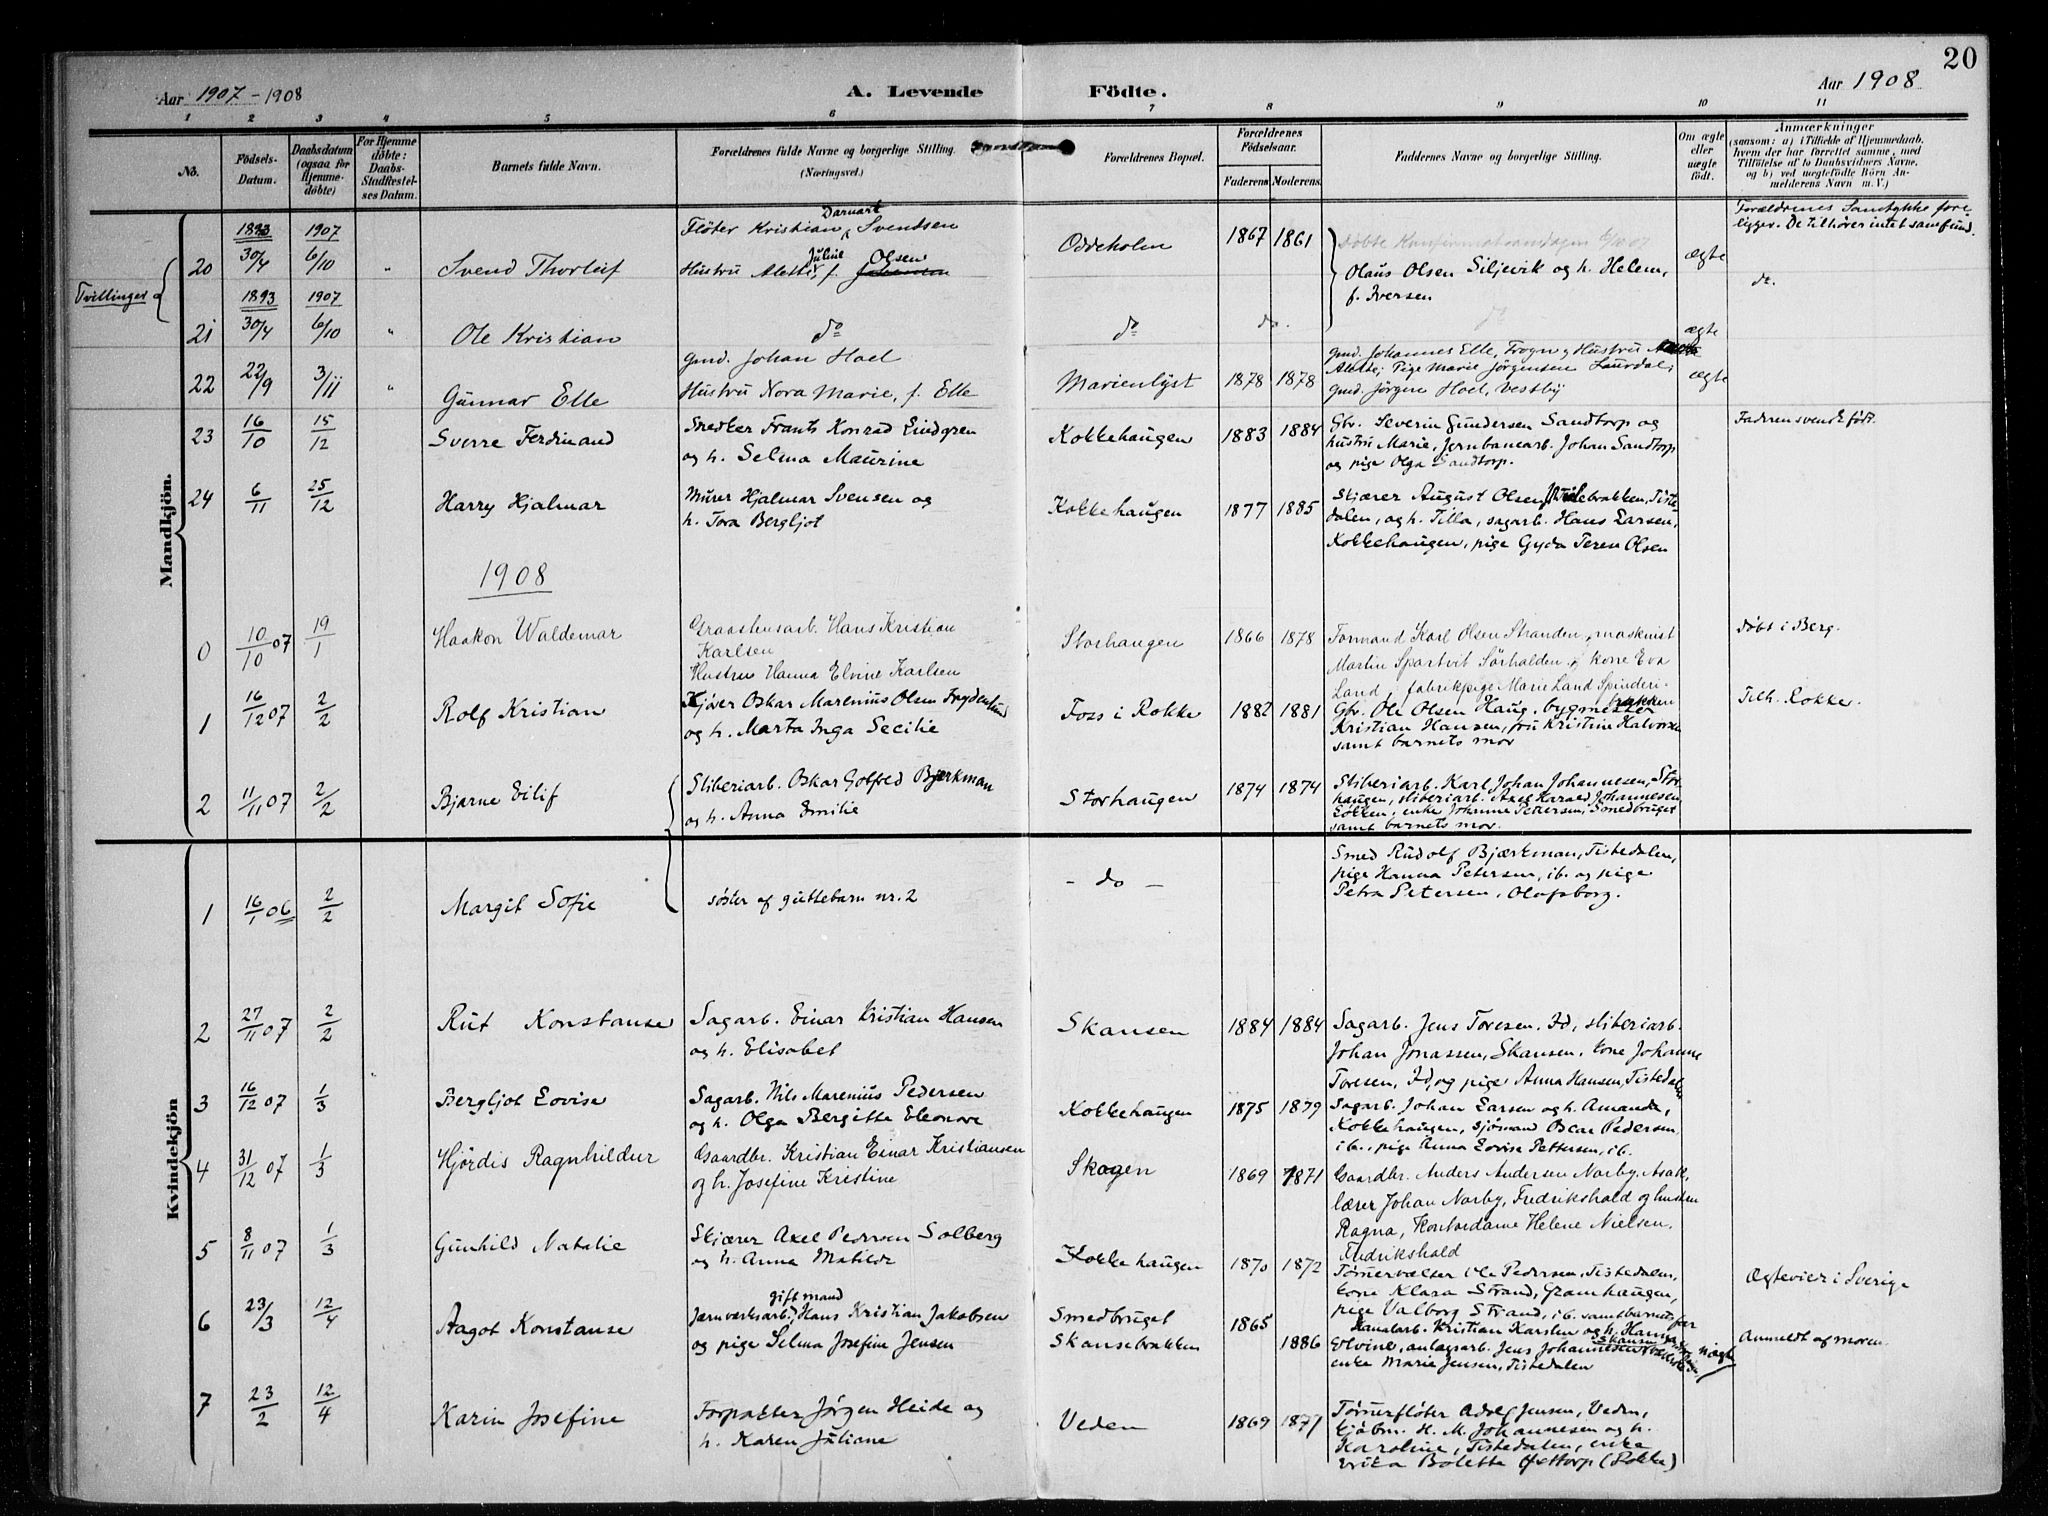 20
Aar 1907 - 1908
A. Levende Födte.
Aar 1908
1 2 3 4 5 6 7 8 9 10 11
No.
Födsels-Datum.
Daabsdatum (ogsaa for Hjemme-döbte)
For Hjemme döbte: Daabs-Stadfæstel-ses Datum.
Barnets fulde Navn.
Forældrenes fulde Navne og borgerlige Stilling.
(Næringsvei.)
Forældrenes Bopæl.
Forældrenes Födselsaar.
Faderens Moderens
Faddernes Navne og borgerlige Stilling.
Om ægte eller uægte födt.
Anmærkninger
(saasom: a) i Tilfælde af Hjemmedaab, hvem der har forrettet samme, med Tilföielse af to Daabsvidners Navne, og b) ved uægtefödte Börn An-melderens Navn m. V.)
Mandkjön.
Tvillinger
20 1893 30/4 1907 6/10 Svend Thorleif
Fløter Kristian Danvart Svendsen
Hustru Alette Juline f. Olsen
Oddeholm 1867 1861
Døbte Konfirmationsdagen 6/10 07
Olaus Olsen Siljevik og h. Helene,
f. Iversen
ægte
Forældrenes Samtykke fore-
ligger. De tilhører intet samfund.
21 1893 30/4 1907 6/10 " Ole Kristian
do do do. do ægte do.
22 22/9 3/11 " Gunnar Elle
Gmd. Johan Hoel
Hustru Nora Marie, f. Elle
Marienlyst 1878 1878
Gmd. Johannes Elle, Frogn, Hustru
Alette; Pige Marie Jørgensen Laurdal;
Gmd. Jørgen Hoel, Vestby
ægte
23 16/10 15/12 Sverre Ferdinand
Snedker Frants Konrad Lindgren
og h. Selma Maurine
Kokkehaugen 1883 1884
Gbr. Severin Gundersen Sandtorp og
hustru Marie, Jernbanearb. Johan Sandtorp
og pige Olga Sandtorp.
Faderen svensk født.
24 6/11 25/12 Harry Hjalmar
Murer Hjalmar Svensen og
h. Tora Bergljot
Kokkehaugen 1877 1885
Skjærer August Olsen, Tiste-
dalen, og h. Tilla, sagarb. Hans Larsen,
Kokkehaugen, pige Gyda Terese Olsen
1908
0 10/10 07 19/1 Haakon Waldemar
Graashusarb. Hans Kristian
Karlsen
Hustru Hanna Elvine Karlsen
Storhaugen 1866 1878
Formand Karl Olsen Stranden, maskinist
Martin Spartvit Sørhalden, kone Eva
Land, fabrikpige Marie Land Spinderi-
bakken
Døbt i Berg.
1 16/12 07 2/2 Rolf Kristian
Kjører Oskar Marenius Olsen Frydenlund
og h. Marta Inga Secilie
Foss i Rokke 1882 1881
Gbr. Ole Olsen Haug, bygmester
Kristian Hansen, fru Kristine Halvorsen
samt barnets mor
Tilh. Rokke.
2 11/11 07 2/2 Bjarne Eilif
Sliberiarb. Oskar Golfred Bjerkman
og h. Anna Emilie
Storhaugen 1874 1874
Sliberiarb. Karl Johan Johannesen, Stor-
haugen, sliberiarb. Axel Harald Johannesen
Løkken, enke Johanne Pettersen, Smedbruget
samt barnets mor.
Kvindekjön
1 16/1 06 2/2 Margit Sofie
søster af guttebarn nr. 2
- do -
Smed Rudolf Bjærkman, Tistedalen,
pige Hanna Petersen, ib. og pige
Petra Petersen, Olafsborg.
2 27/11 07 2/2 Rut Konstanse
Sagarb. Einar Kristian Hansen
og h. Elisabet
Skansen 1884 1884
Sagarb. Jens Toresen, Id, sliberiarb.
Johan Jonassen, Skansen, kone Johanne
Toresen, Id, og pige Anna Hansen, Tistedalen
3 16/12 07 1/3 Bergljot Lovise
Sagarb. Nils Marenius Pedersen
og h. Olga Bergitte Eleonore
Kokkehaugen 1875 1879
Sagarb. Johan Larsen og h. Amanda,
Kokkehaugen, sjømand Oscar Pedersen,
ib., pige Anna Lovise Pettersen, ib.
4 31/12 07 1/3 Hjørdis Ragnhildur
Gaardbr. Kristian Einar Kristiansen
og h. Josefine Kristine
Skogen 1869 1871
Gaardbr. Anders Andersen Norby, Asak,
lærer Johan Norby, Fredrikshald og hustru
Ragna, Kontordame Helene Nielsen,
Fredrikshald
5 8/11 07 1/3 Gunhild Natalie
Skjærer Axel Pedersen Solberg
og h. Anna Matilde
Kokkehaugen 1870 1872
Tømmervælter Ole Pedersen, Tistedalen,
kone Klara Strand, Gramhaugen,
pige Valborg Strand, ib. samt barnets far
Ægteviet i Sverige
6 23/3 12/4 Aagot Konstanse
Jernverksarb., gift mand Hans Kristian Jakobsen
og pige Selma Josefine Jensen
Smedbruget
Skansebakken
1865 1886
Kanalarb. Kristian Karsten og h. Hanna
Olvine, anlagsarb. Jens Johannesen
enke Marie Jensen, Tistedalen
uægte
Anmeldt af moren.
7 23/2 12/4 Karin Josefine
Forpakter Jørgen Heide og
h. Karen Juliane
Veden 1869 1877
Tømmerfløter Adolf Jensen, Veden,
kjøbm. H. M. Johannesen og h.
Karoline, Tistedalen, enke
Erika Bolette Østtorp (Rokke)